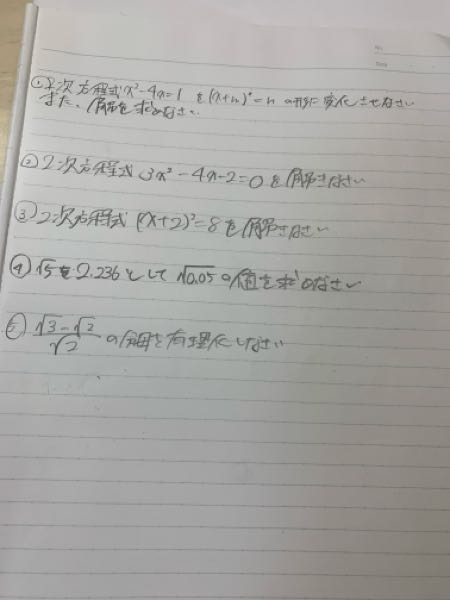 ① 2次方程式x²-4x=1を(x+m)²=nの形に変化させなさい
また、解を求めなさい
② 2次方程式3x²-4x-2=0を解きなさい
③ 2次方程式(x+2)²=8を解きなさい
④ √5を2.236として√0.05の値を求めなさい
⑤ (√3-√2)/√2の分母を有理化しなさい